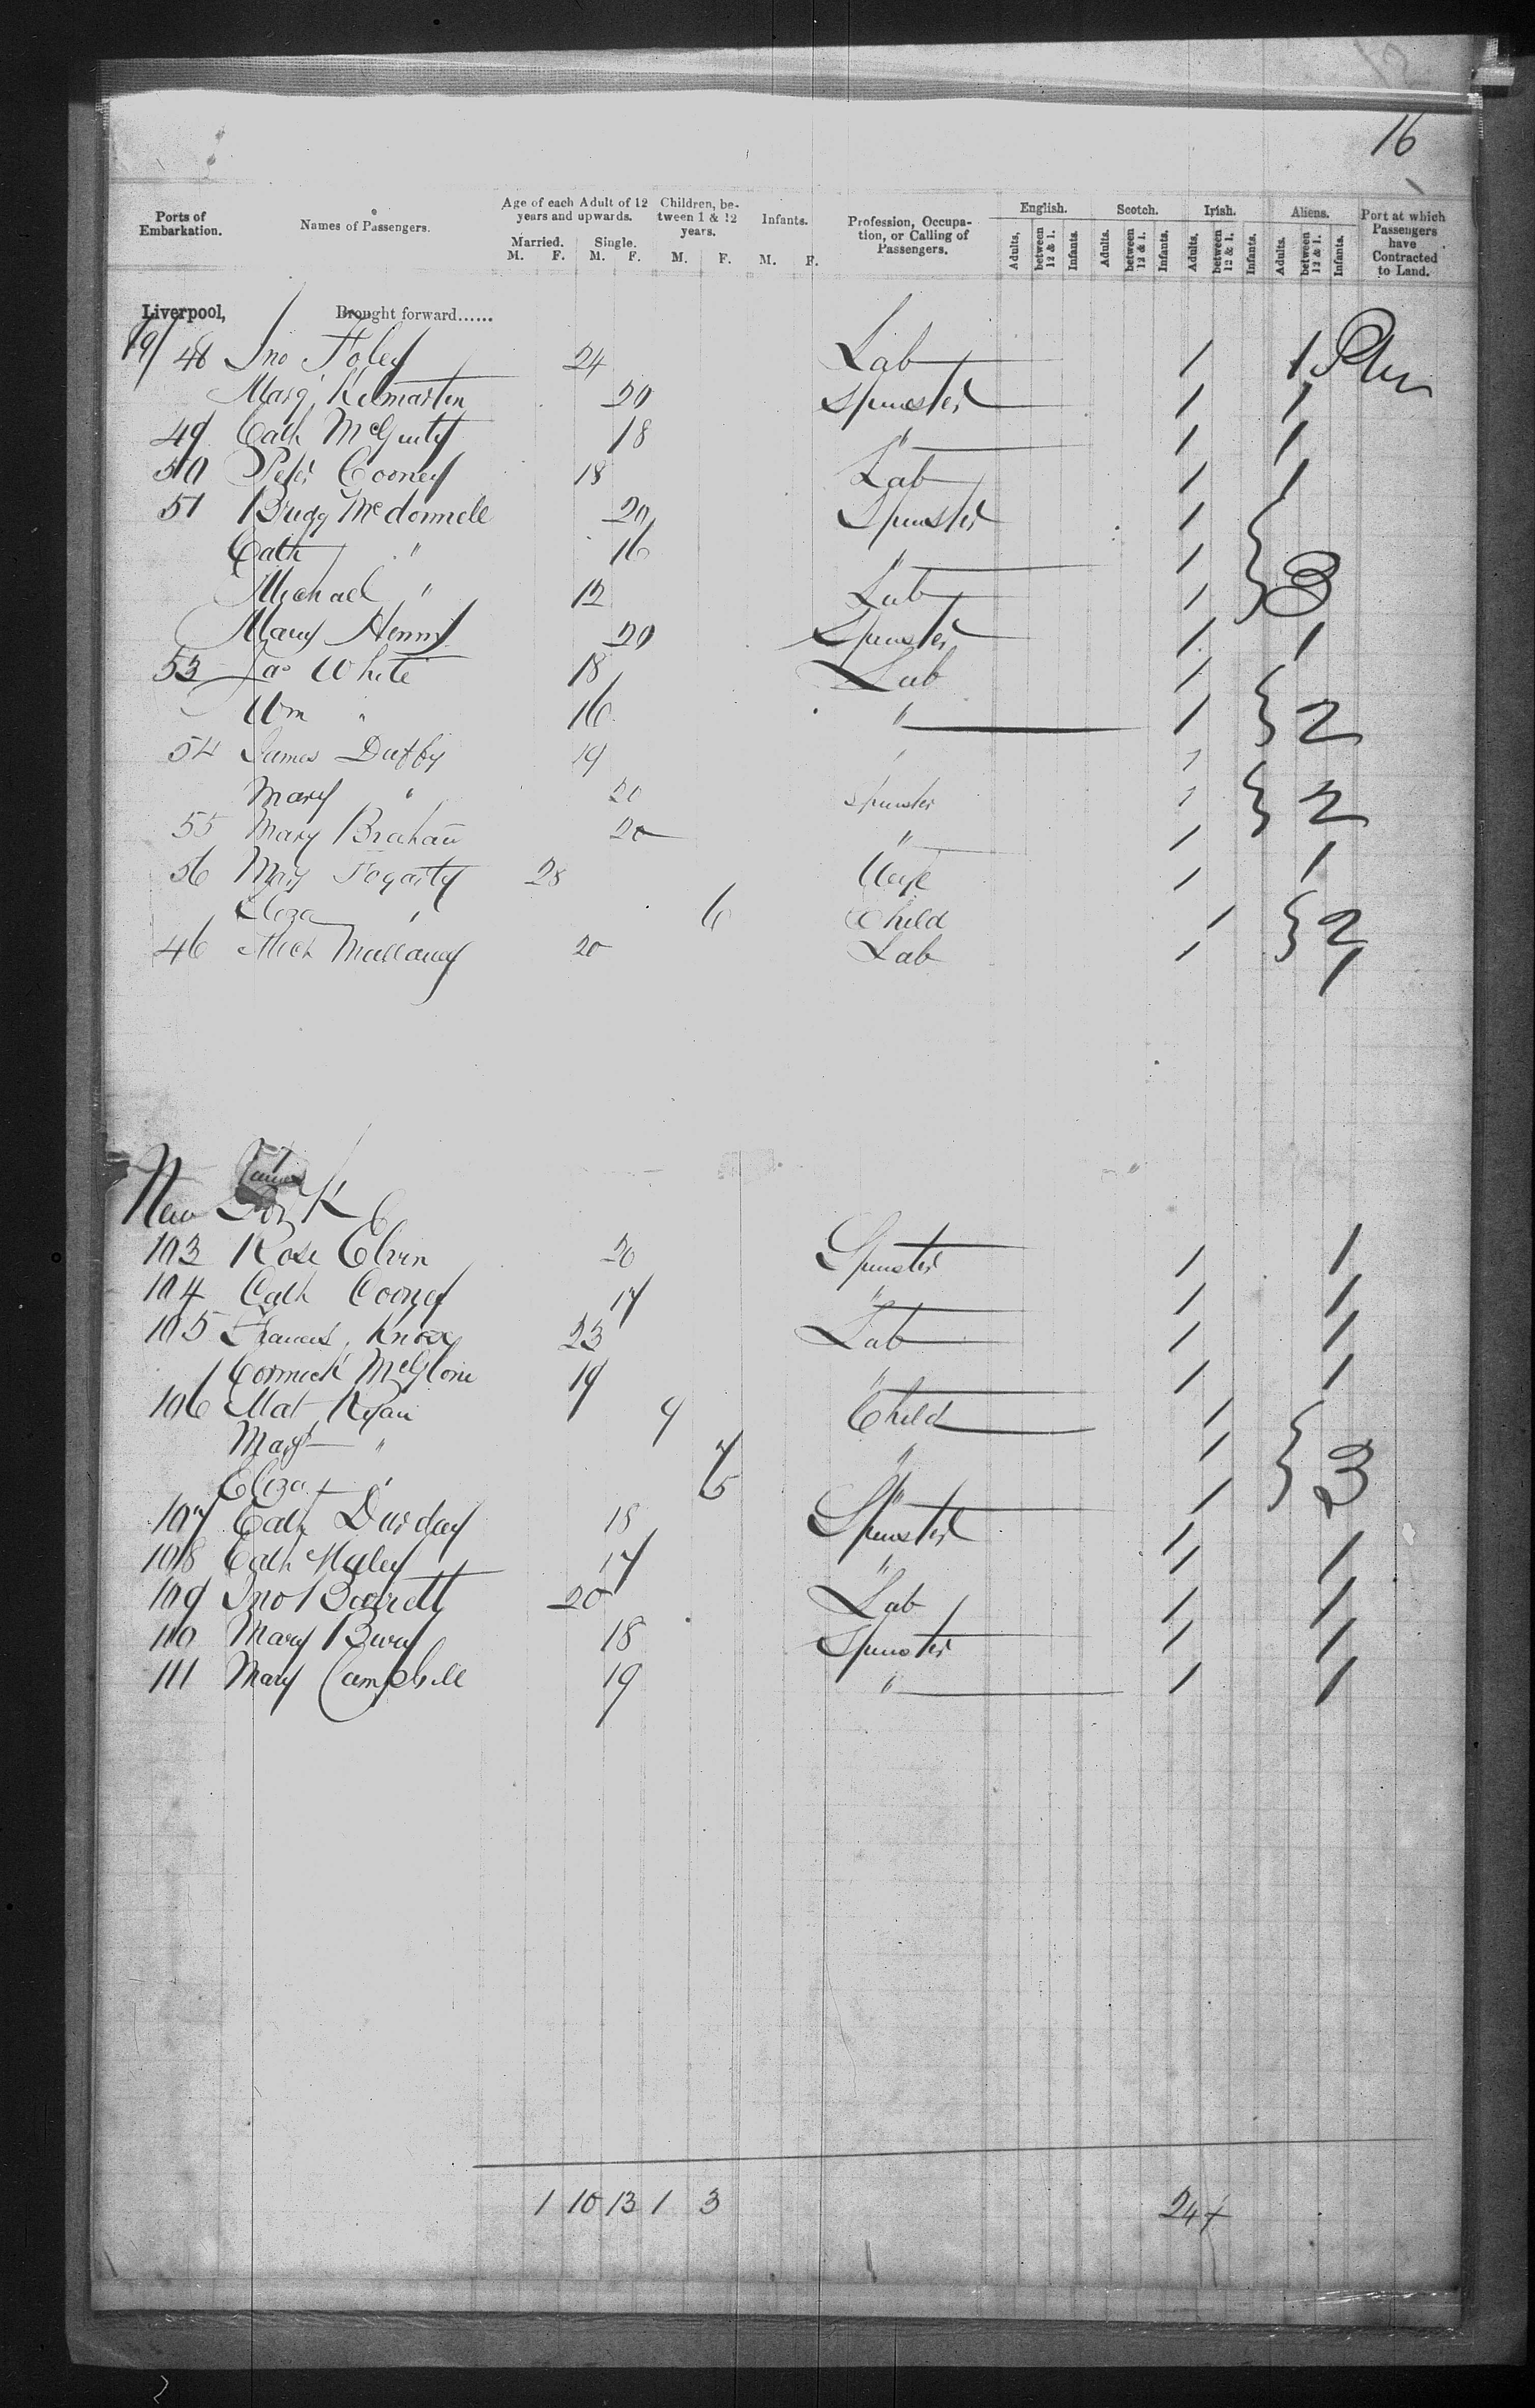 16
Ports of Embarkation. Names of Passengers. Age of each Adult of 12 years and upwards. Children, between 1 & 12 years. Infants. Profession, Occupation, or Calling of Passengers. English. Scotch. Irish. Aliens. Port at which Passengers have Contracted to Land.
Married. Single.
M. F. M. F. M. F. M. F. Adults, between 12 & 1. Infants. Adults. between 12 & 1. Infants. Adults, between 12 & 1. Infants. Adults. between 12 & 1. Infants.
Liverpool, Brought forward......
48 Jno Foley 24 Lab 1 1
Marg Kilmartin 20 Spinster 1 1
49 Cath McGinty 18 " 1 1
50 Petr Cooney 18 Lab 1 1
51 Bridg McDonnell 20 Spinster 1
Cath " 16 " 1
Michael " 12 Lab 1 3
Mary Henry 20 Spinster 1 1
53 Jas White 18 Lab 1
Wm " 16 " 1 2
54 James Duffy 19 " 1
Mary " 20 Spinster 1 2
55 Mary 20 " 1
56 Mary Fogarty 28 Wife 1 1
Eliza " 6 Child 1 2
46 Mich Mullaney 20 Lab 1 1
New York
103 Rose 20 Spinster 1 1
104 Cath Cooney 17 " 1 1
105 Francis Knox 23 Lab 1 1
Cormick McGlone 19 " 1 1
106 Mat Ryan 9 Child 1
Mary " 7 " 1
Eliza " 5 " 1 3
107 Cath 18 Spinster 1
108 Cath 17 " 1 1
109 Jno Barrett 20 Lab 1 1
110 Mary 18 Spinster 1 1
111 Mary Campbell 19 " 1 1
1 10 13 1 3 24 4